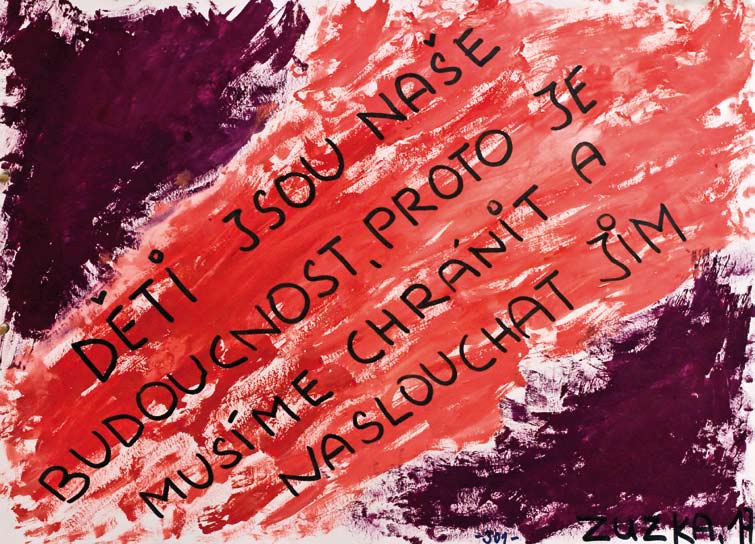 DĚTI JSOU NAŠE
BUDOUCNOST, PROTO JE
MUSÍME CHRÁNIT A
NASLOUCHAT JIM
-301-
ZUZKA,